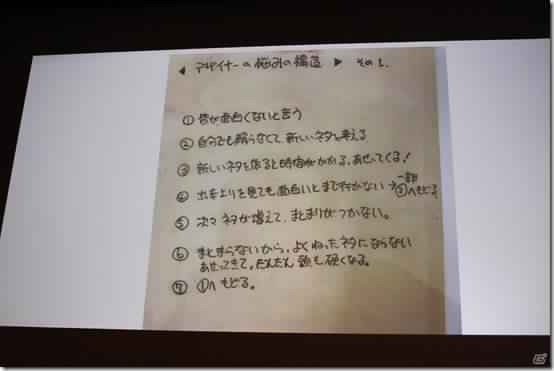 ◀ デザイナーの悩みの構造 ▶ その1.
① 皆が面白くないと言う
② 自分でも頼らなくて、新しいネタを考える
③ 新しいネタを作ると時間がかかる、あせってくる!
④ 出来上りを見ても面白いとまで行かない 一部①へもどる
⑤ 次々ネタが増えて、まとまりがつかない。
⑥ まとまらないから、よくねったネタにならない
あせってきて、だんだん 頭も硬くなる。
⑦ ①へもどる。